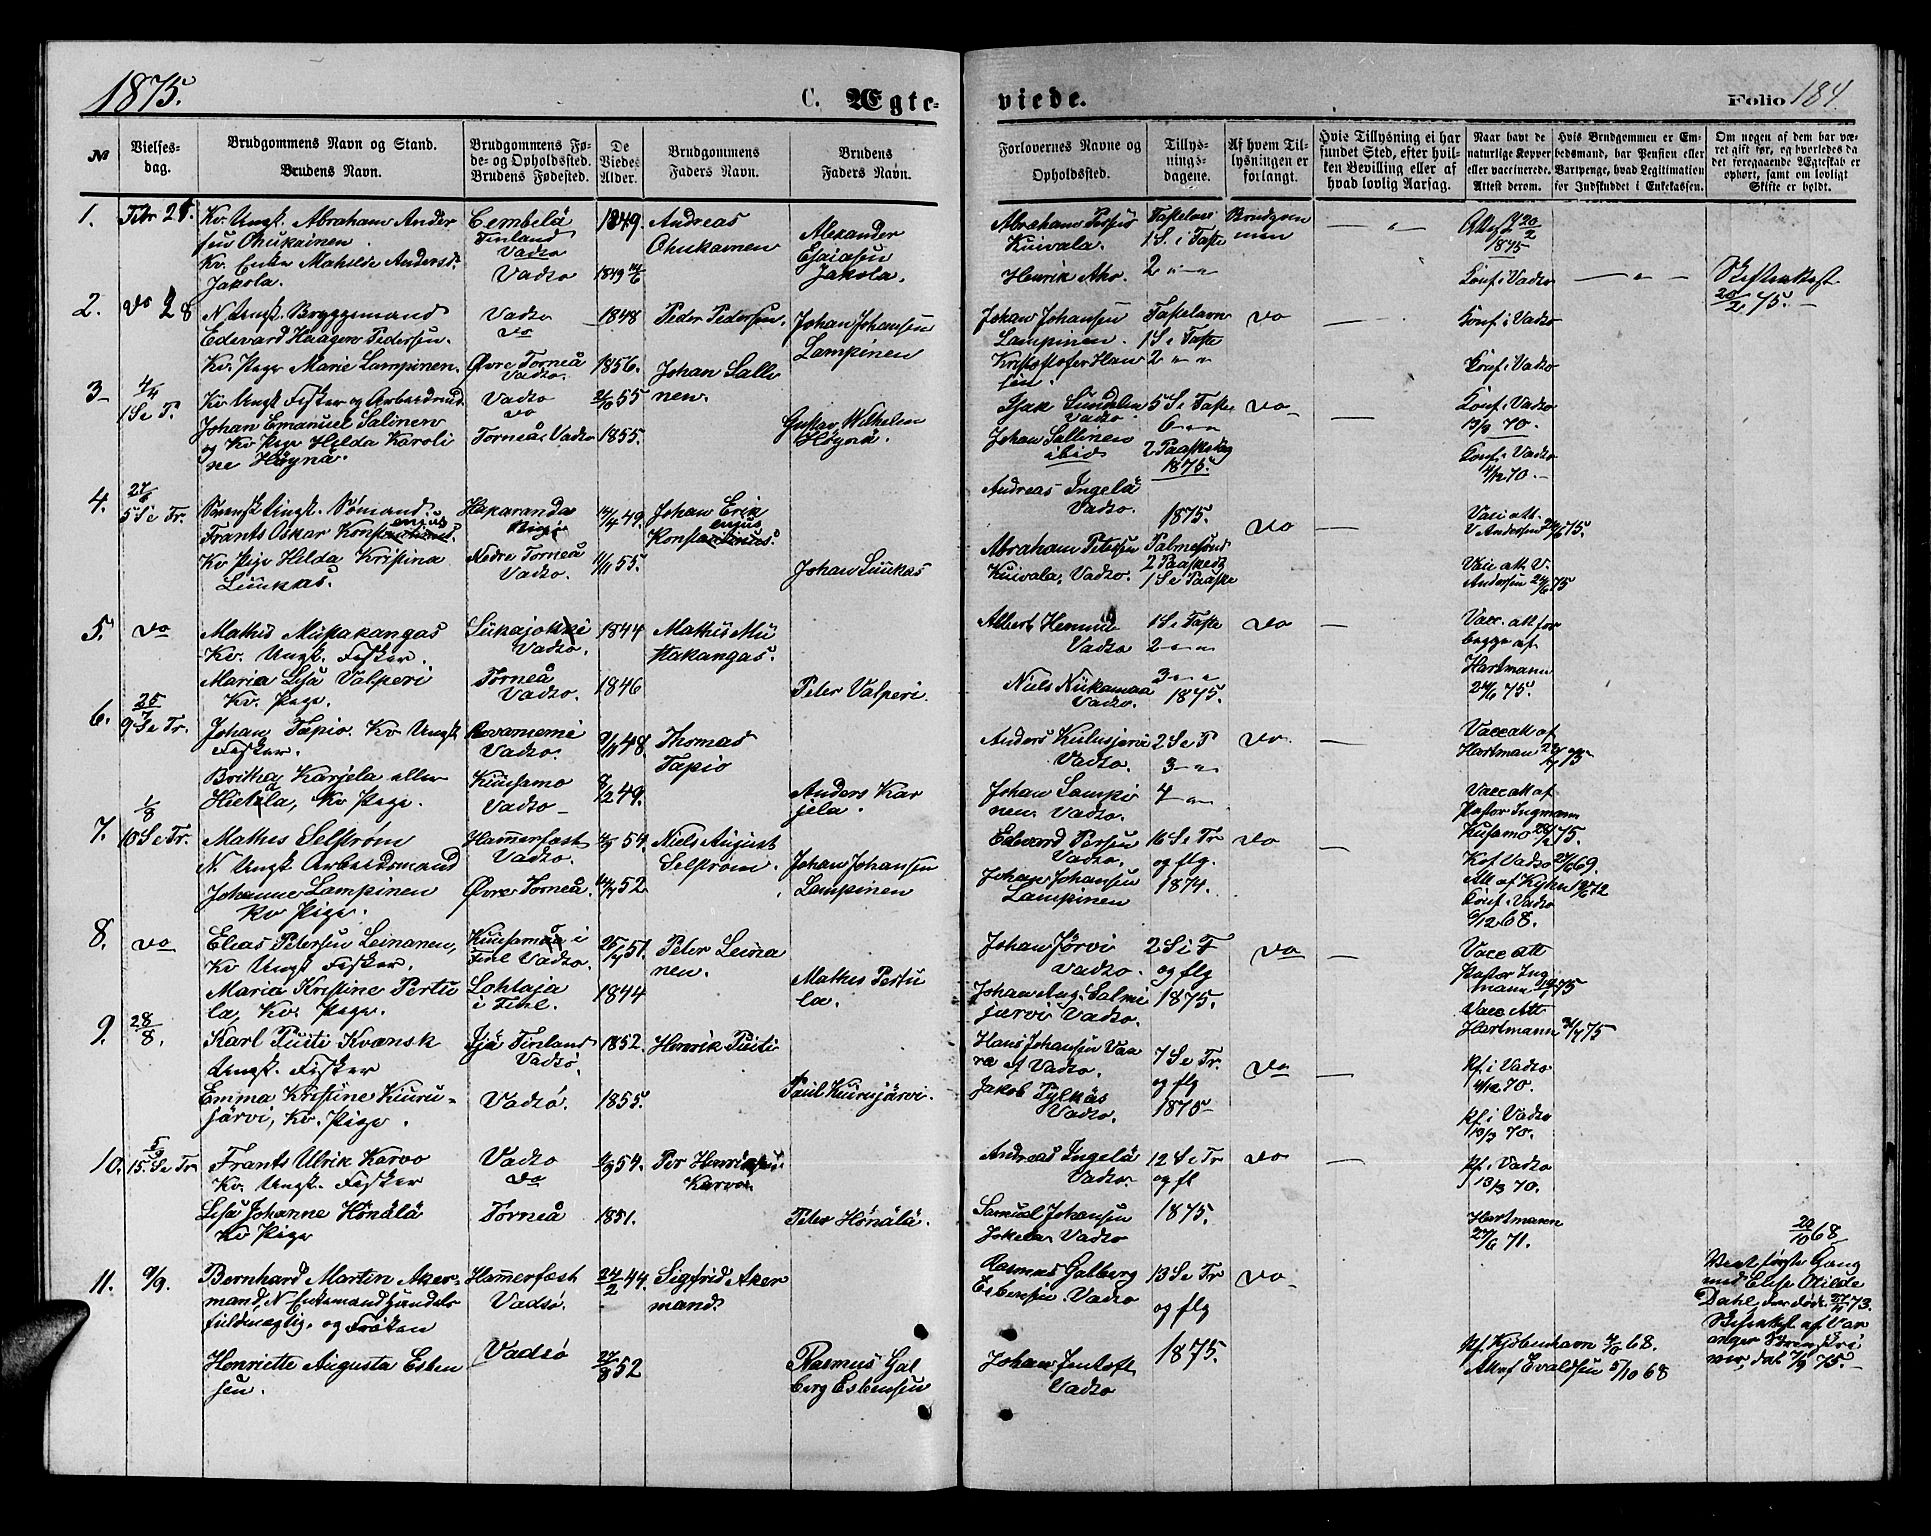 1875.
C. Ægte-
viede.
Folio 184.
№
Vielses-
dag.
Brudgommens Navn og Stand.
Brudens Navn.
Brudgommens Fø-
de- og Opholdssted.
Brudens Fødested.
De
Viedes
Alder.
Brudgommens
Faders Navn.
Brudens
Faders Navn.
Forlovernes Navne og
Opholdssted.
Tillys-
nings-
dagene.
Af hvem Til-
lysningen er
forlangt.
Hvis Tillysning ei har
fundet Sted, efter hvil-
ken Bevilling eller af
hvad lovlig Aarsag.
Naar havt de
naturlige Kopper
eller vaccinerede.
Attest derom.
Hvis Brudgommen er Em-
bedsmand, har Pension eller
Vartpenge, hvad Legitimation
for Indskuddet i Enkekassen.
Om nogen af dem har væ-
ret gift før, og hvorledes da
det foregaaende Ægteskab er
ophørt, samt om lovligt
Skifte er holdt.
1.
Febr 21.
Kv. Ungk. Abraham Ander
sen Ohukainen.
Kv. Enke Mathilde Andersd.
Jakola.
Cembelä
Finland
Vadsø
Vadsø
1849.
1849
Andreas
Ohukainen
Alexander
Esaiasen
Jakola.
Abraham Persen
Kuivala.
Henrik Aho.
Fastelavn
1 S. i Faste
2 " "
Brudgom
men
20/2
1875
Konf. i Vadsø
Skifteattest
20/2 75.
2.
Do 28
N. Ungk. Bryggemand
Edevard Haagen Pedersen.
Kv. Pige Marie Lampinen.
Vadsø
Do
Øvre Torneå
Vadsø.
1848
1856.
Peder Pedersen.
Johan Johansen
Lampinen
Johan Johansen
Lampinen.
Kristoffer Han
sen.
Fastelavn
1 S. i Faste
2 " "
Do
Konf. i Vadsø
Konf. i Vadsø
3
4/4
1 S e P.
Kv. Ungk. Fisker og Arbeidsmd.
Johan Emanuel Salinen
og Kv. Pige Hilda Karoli
ne Høynä.
Vadsø
Do
Torneå, Vadsø
55
1855.
Johan Salli
nen.
Gustav Wilhelm
Høynä.
Isak Sundelin
Vadsø.
Johan Sallinen
ibid
5 S e Faste
6 " "
2 Paaskedag
1875.
Do
Konf. i Vadsø
13/3 70.
Konf. i Vadsø
4/12 70.
4.
27/6
5 S e Tr.
Svensk Ungk. Sømand.
Frants Oskar Konstantinus.
Kv. Pige Hilda Kristina
Liinkas.
Haparanda
Nedre Torneå
Vadsø.
14/4 49.
11/11 55.
Johan Erik
Konstantinus.
Johan Liinkas
Andreas Ingelä
Vadsø.
Abraham Petersen
Kuivala, Vadsø.
1875.
Palmesønd
2 Paaskedg
1 S e Paaske
Do
Vacc att.
V. Andersen 24/6 75.
Vacc att V.
Andersen 24/6 75
5.
Do
Mathis Mustakangas
Kv. Ungk. Fisker.
Maria Lisa Valperi
Kv. Pige.
Siikajokki
Vadsø.
Torneå
Vadsø.
1844
1846
Mathis Mu
stakangas.
Peter Valperi.
Albert Heman
Vadsø
Niels Niikamaa
Vadsø.
1 S e Faste
2 " "
3 " "
1875.
Do
Vacc. att for
begge af
Hartmann
24/6 75.
6.
25/7
9 S e Tr.
Johan Tapio. Kv Ungk
Fisker.
Britha Karjela eller
Hietala, Kv Pige.
Rovaniemi
Vadsø.
Kuusamo
Vadsø
48
8/2 49.
Thomas
Tapio
Anders Kar
jela.
Anders Kulusjervi
Vadsø.
Johan Lampi
nen. Vadsø.
2 S e P
3 " "
4 " "
Do.
Vacc att af
Hartman
Vacc att af
Pastor Ingmann
Kusamo 75.
7.
1/8
10 S e Tr.
Mathis Selstrøm
N. Ungk. Arbeidsmand
Johanne Lampinen
Kv Pige.
Hammerfest
Vadsø.
Øvre Torneå.
54.
52.
Niels August
Selstrøm.
Johan Johansen
Lampinen
Edevard Persen
Vadsø.
Johan Johansen
Lampinen
16 S e Tr
og flg.
1874.
Do
Kof Vadsø 69.
Att af Kyhn 72
Conf. i Vadsø
6/12 68.
8.
Do
Elias Petersen Leinanen,
Kv Ungk. Fisker.
Maria Kristine Pertu
la, Kv. Pige.
Kuusamo i
Finl Vadsø.
Lohtaja
i Finl.
51.
1844
Peter Leina
nen.
Mathis Pertu
la.
Johan Jørvi
Vadsø.
Johan Aug. Salmi
järvi Vadsø.
2 S e F
og flg
1875.
Do
Vacc att
Pastor Ing
mann 75
Vacc Att
Hartmann 75
9.
28/8.
Karl Pusti Kvænsk
Ungk. Fisker
Emma Kristine Kuuru-
järvi, Kv. Pige.
Ijä Finland
Vadsø.
Vadsø.
1852.
1855.
Henrik Puiti
Paul Kuurujärvi.
Hans Johansen Vaa
ra af Vadsø.
Jakob Pylkäs
Vadsø.
7 S e Tr.
og flg
1875
Do
Kf. i Vadsø
4/12 70.
Kf. i Vadsø
13/3 70.
10.
5/9
15. S e Tr
Frants Ulrik Karvo
Kv. Ungk. Fisker
Lisa Johanne Hönälä
Kv Pige
Vadsø
Do
Torneå
54.
1851.
Per Henriksen
Karvo.
Peter Hönälä.
Andreas Ingelä
Vadsø.
Samuel Johansen
Jokela, Vadsø.
12 S e Tr
og fl
1875.
Do
Kf. i Vadsø
13/3 70.
Hartmann
27/6 71.
11.
9/9.
Bernhard Martin Aker-
mand, N. Enkemand Handels
fuldmægtig, og Frøken
Henriette Augusta Esben
sen.
Hammerfest
Vadsø.
Vadsø
24/2 44.
27/8 52
Sigfrid Aker
mand.
Rasmus Gal
berg Esbensen
Rasmus Galberg
Esbensen. Vadsø
Johan Jentoft
Vadsø
13 S e Tr
og flg
1875.
Do
Kf. Kjøbenhavn 68.
Att af Evaldsen 5/10 68
20/10 68
Viet første Gang
med Elise Otilde
Dahl, der døde 73.
Skifteattest af Var
anger Sorenskri
ver, dat 7/9 75.